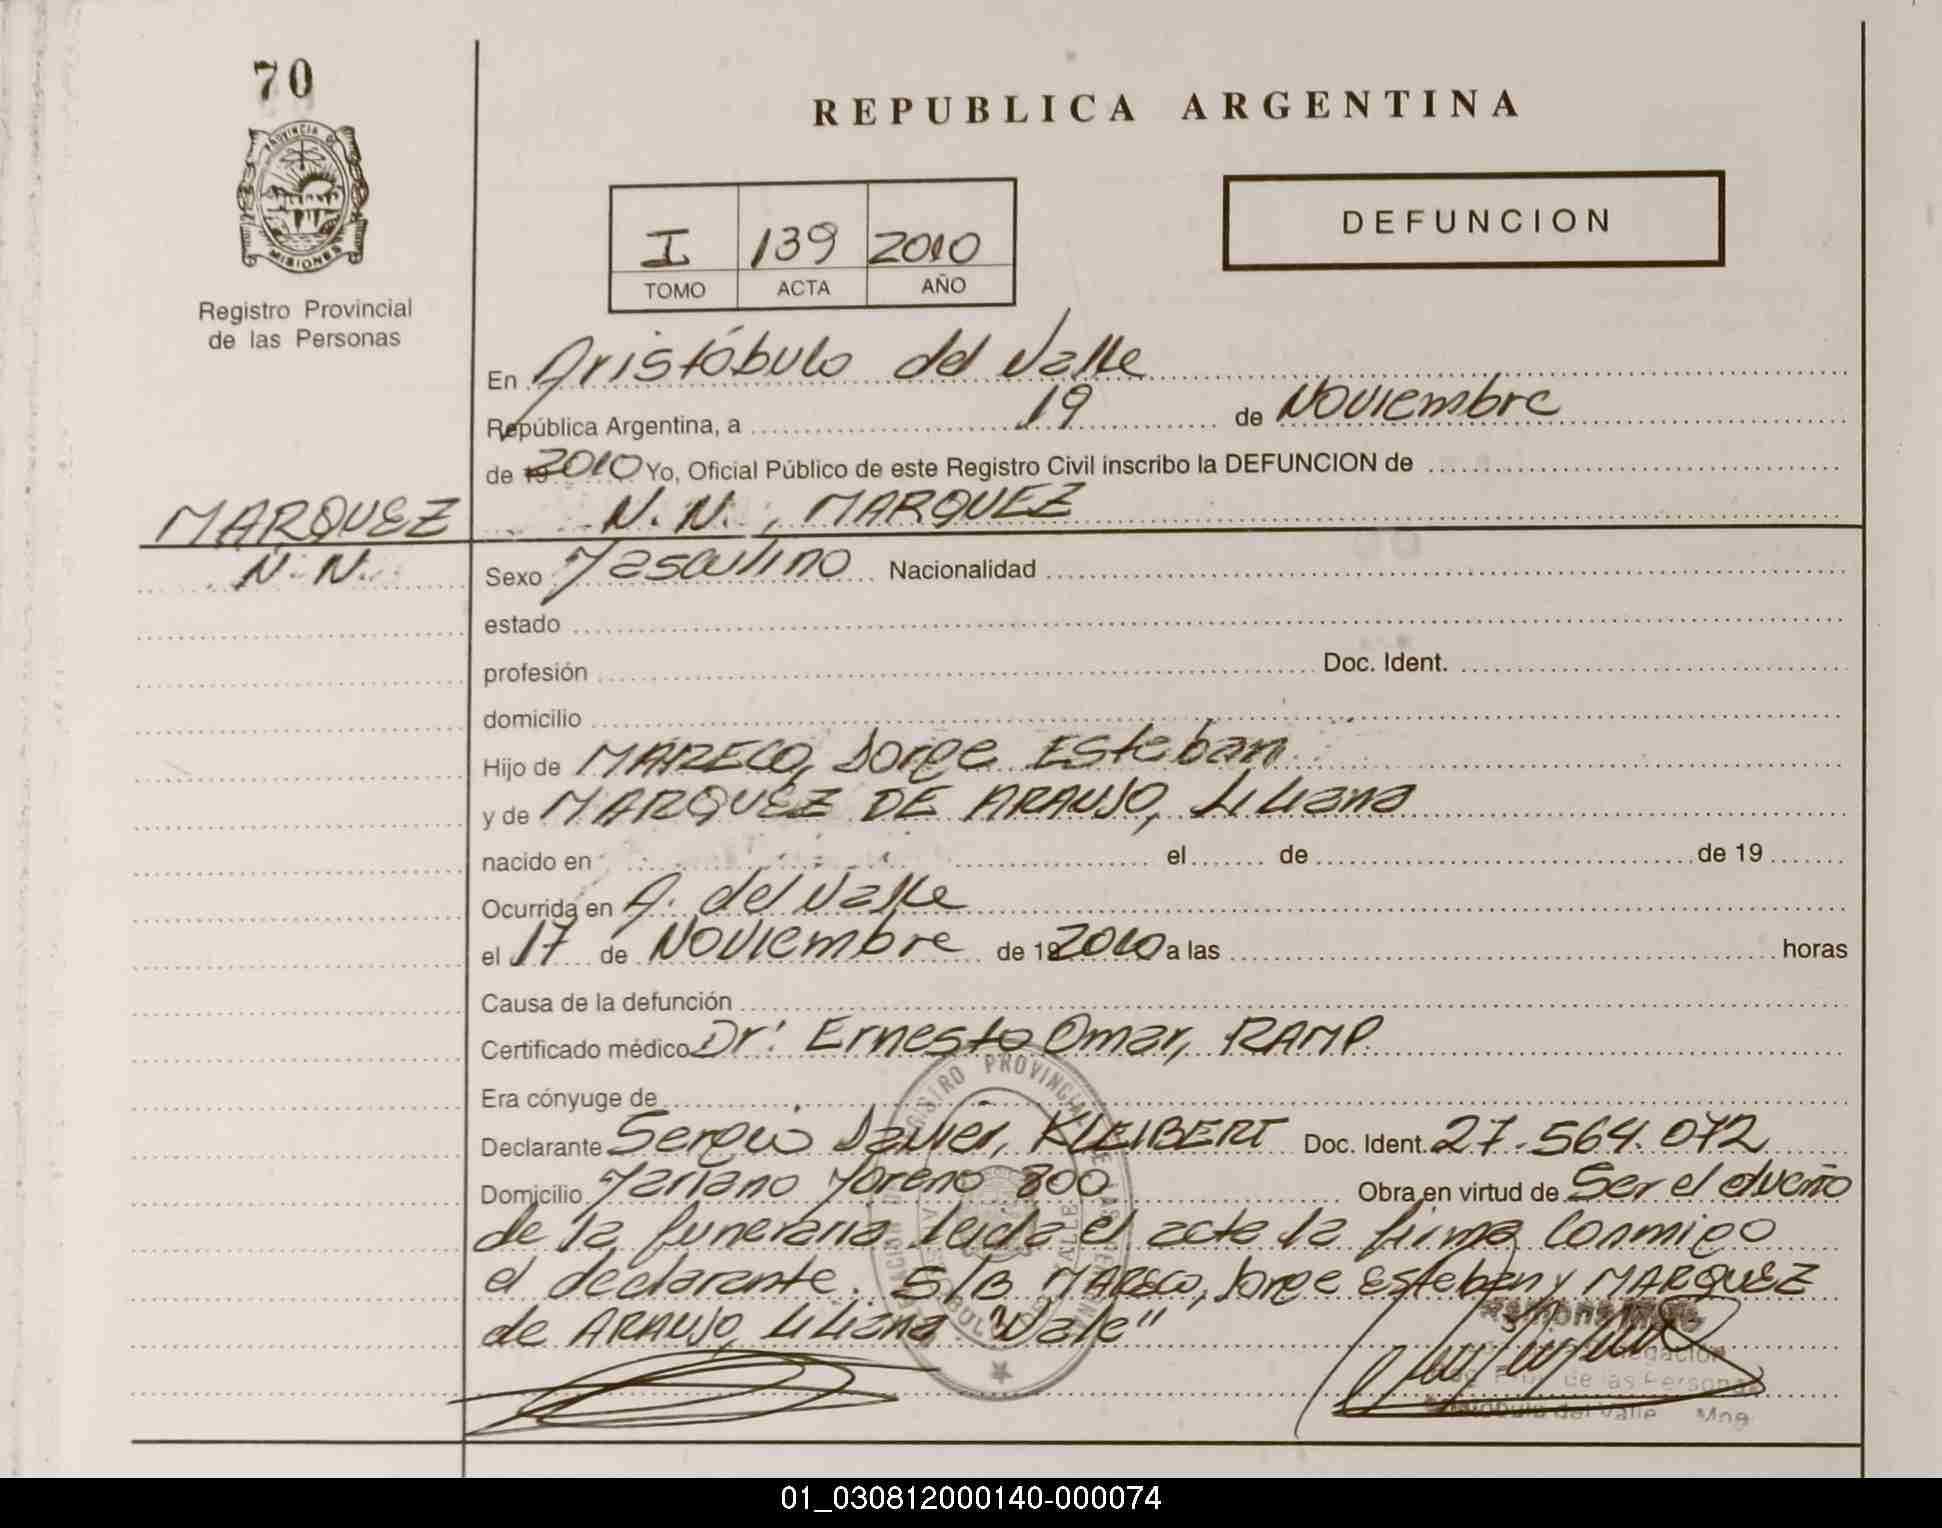 70
PROVINCIA DE
MISIONES
Registro Provincial
de las Personas
REPUBLICA ARGENTINA
I 139 2010
TOMO ACTA AÑO
DEFUNCION
En Aristóbulo del Valle
República Argentina, a 19 de Noviembre
de 19 2010 Yo, Oficial Público de este Registro Civil inscribo la DEFUNCION de
MARQUEZ N.N., MARQUEZ
N.N.
Sexo Masculino Nacionalidad
estado
profesión Doc. Ident.
domicilio
Hijo de MARECO, Jorge Esteban
y de MARQUEZ DE ARAUJO, Liliana
nacido en el de de 19
Ocurrida en A. del Valle
el 17 de Noviembre de 19 2010 a las horas
Causa de la defunción
Certificado médico Dr. Ernesto Omar, RAMP
Era cónyuge de
Declarante Sergio Javier, KLEIBERT Doc. Ident. 27.564.072
Domicilio Mariano Moreno 800 Obra en virtud de Ser el dueño
de la funeraria leida el acta la firma Conmigo
el declarante. S/B MARECO, Jorge Esteban y MARQUEZ
de ARAUJO, Liliana "Vale"
REGISTRO PROVINCIAL DE LAS PERSONAS
de las Personas
Aristobulo del Valle Mnes
01_030812000140-000074